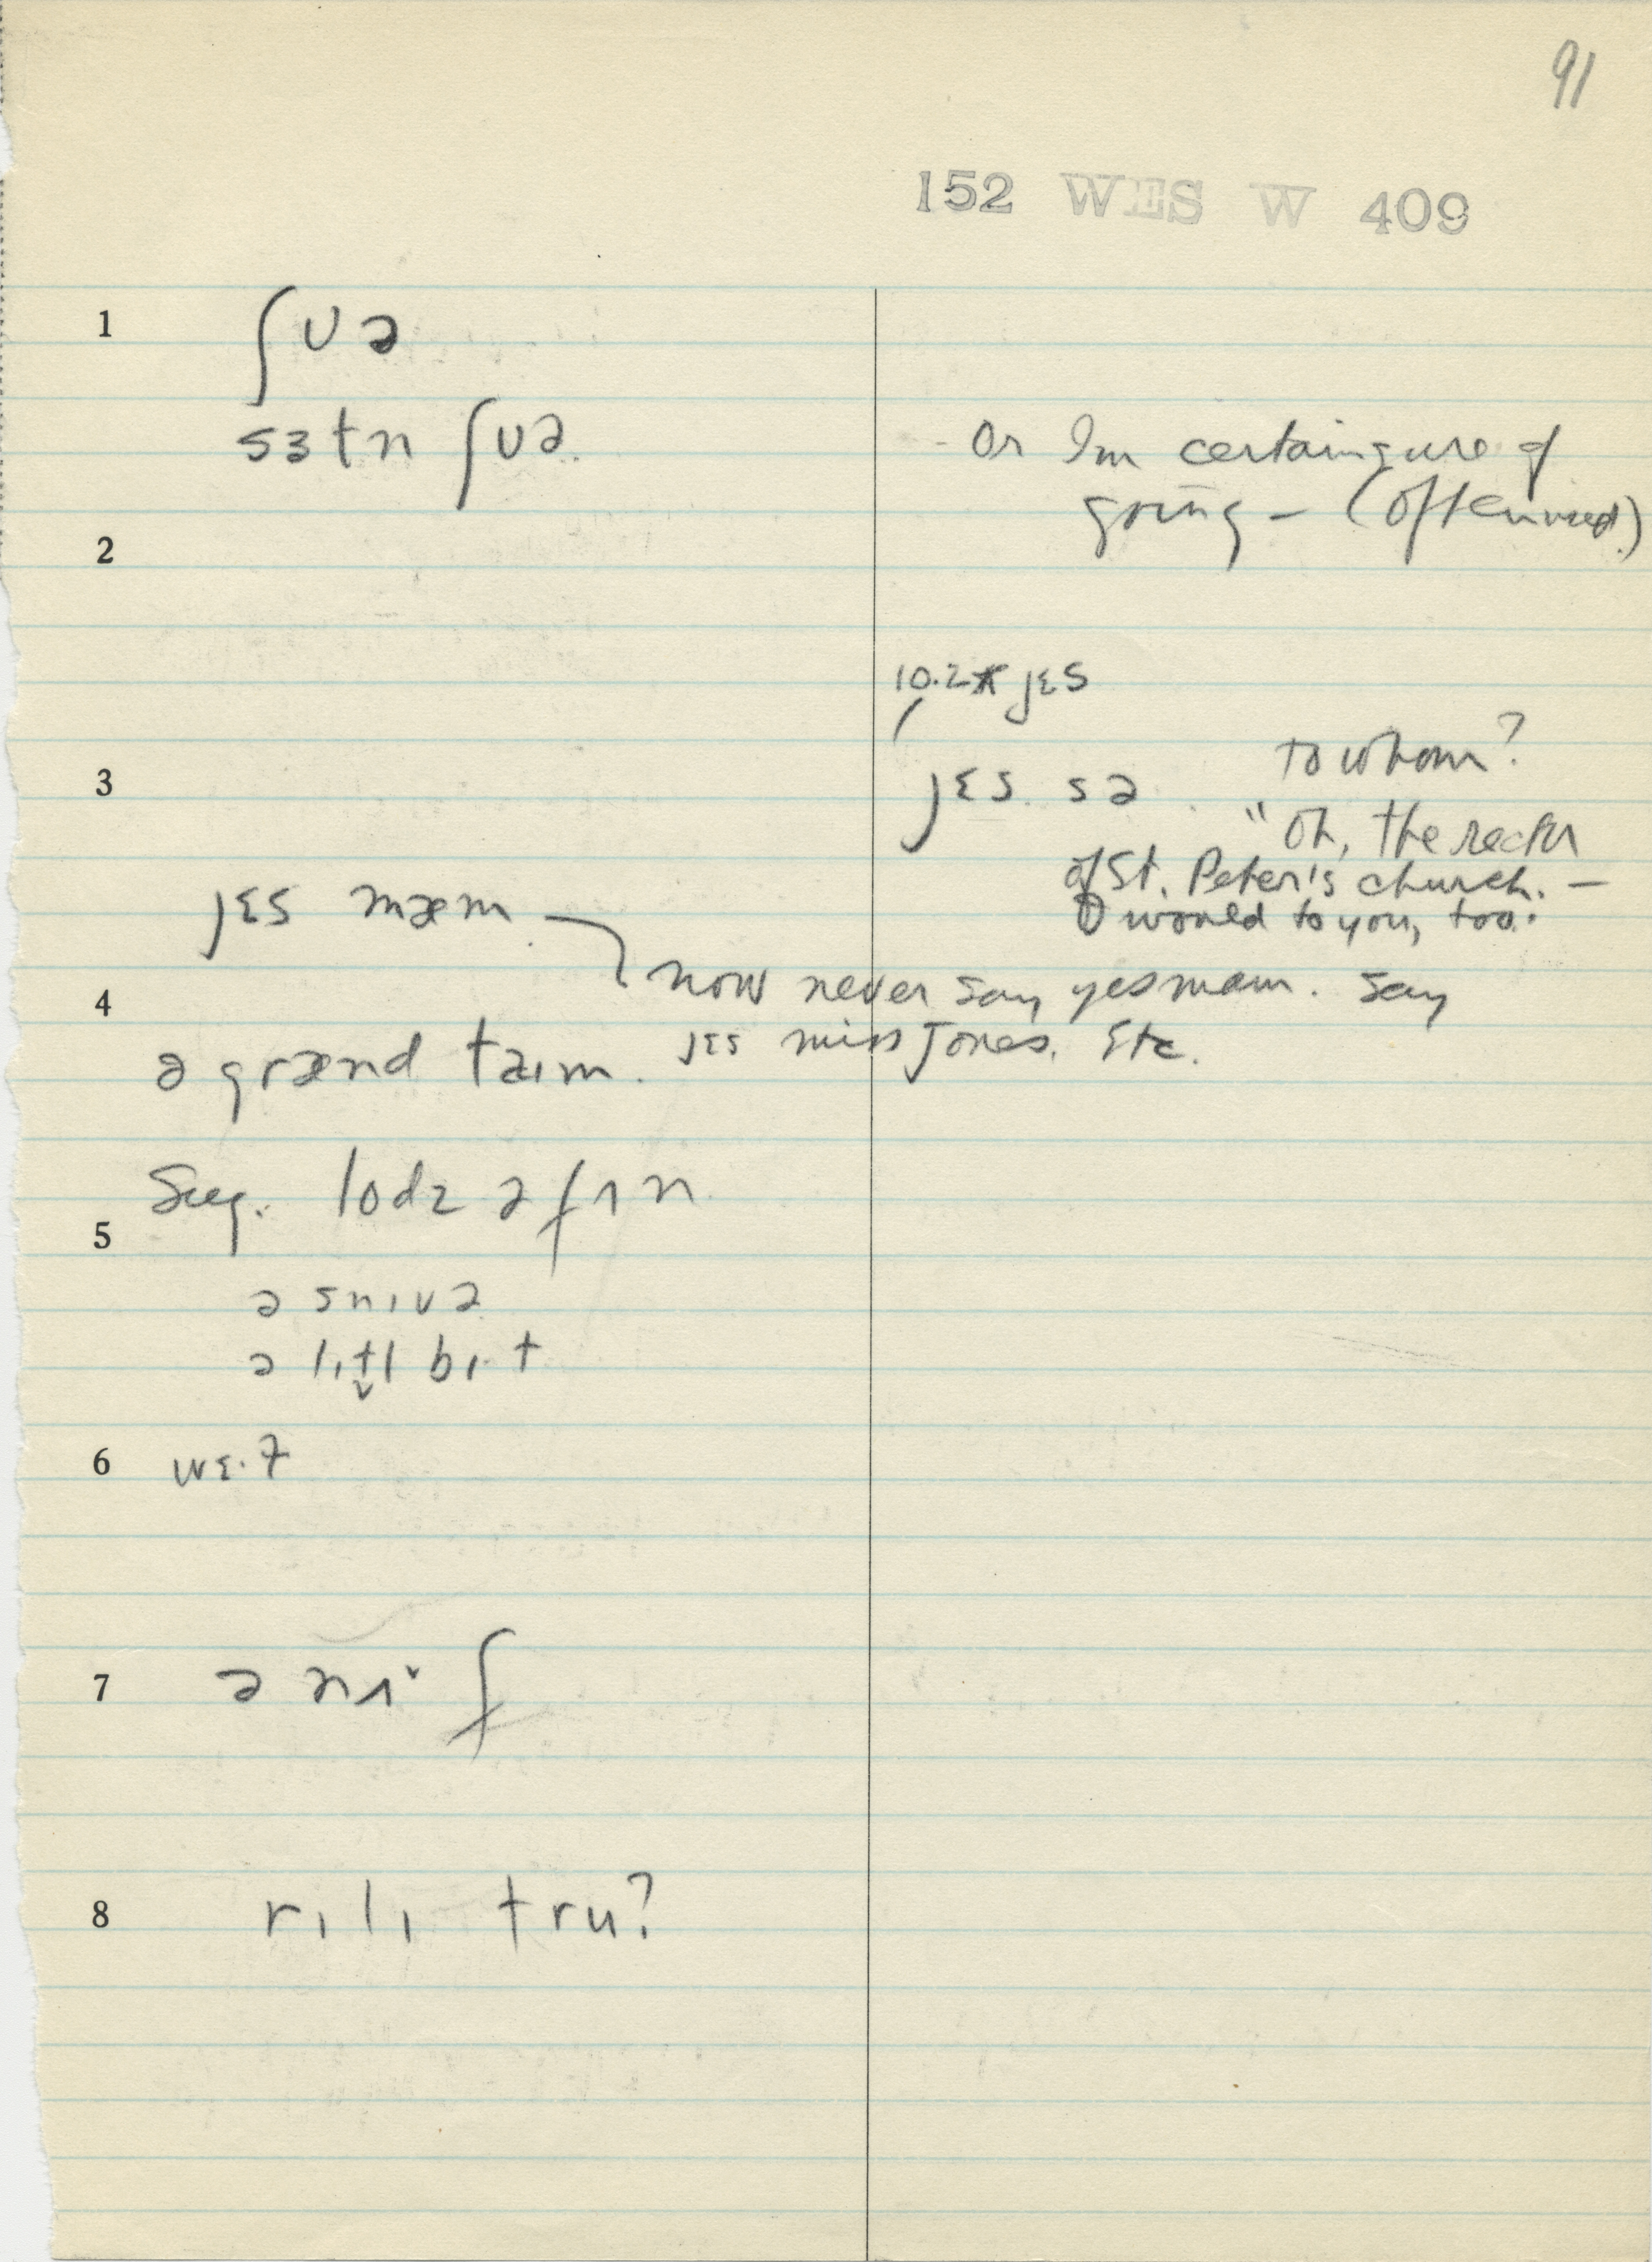 91
152 WES W 409
1 ʃʊə
sɜtn ʃʊə.
- Or I'm certain sure of
going – (often used.)
2
10.2* jɛs
3 jɛs sə
to whom?
"Oh, the rector
of St. Peter's church. –
I would to you, too."
jɛs mæm
now never say yes mam. Say
jɛs miss Jones. Etc.
4
ə grænd taɪm.
Sug. lodz ə fʌn
5
ə snɪvə
ə lɪt̬l bɪ·t
6 wɛ·ɫ
7 ə nɪˇf
8 rɪlɪ tru?